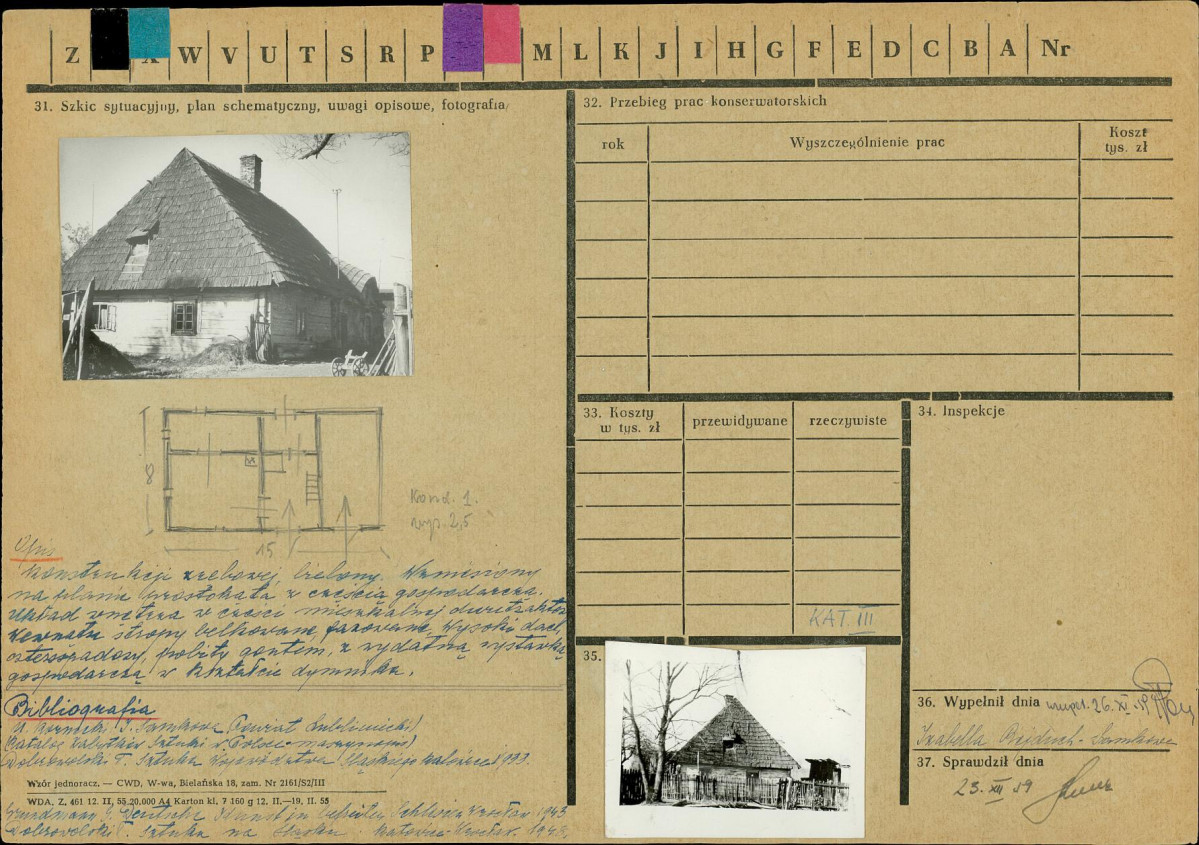 Z X W V U T S R P M L K J I H G F E D C B A Nr
31. Szkic sytuacyjny, plan schematyczny, uwagi opisowe, fotografia
32. Przebieg prac konserwatorskich
rok Wyszczególnienie prac Koszt
tys. zł
33. Koszty
w tys. zł
przewidywane rzeczywiste
34. Inspekcje
8
15
Kond. 1.
wys. 2,5
KAT. III
Opis
Konstrukcji zrębowej, bielony. Wzniesiony
na planie prostokąta z częścią gospodarczą.
Układ wnętrza w części mieszkalnej dwutraktowy
wewnątrz stropy belkowane, fazowane. Wysoki dach,
czterospadowy, pobity gontem, z wydatną wystawką
gospodarczą w kształcie dymnika.
Bibliografia
I. Samkowa Powiat Lubliniecki
Katalog Zabytków Sztuki w Polsce maszynopis
Dobrowolski T. Sztuka Województwa Śląskiego Katowice 1933.
Wzór jednoracz. — CWD, W-wa, Bielańska 18, zam. Nr 2161/S2/III
WDA, Z, 461 12. II, 55 20.000 A4 Karton kl. 7 160 g 12. II.—19. II. 55
Grundmann G. Deutsche Kunst im befreiten Schlesien Wrocław 1943
Dobrowolski T. Sztuka na Śląsku. Katowice-Wrocław. 1948.
35.
36. Wypełnił dnia 26. XI.
Izabella Rejduch-Samkowa
37. Sprawdził dnia
23. XII 59